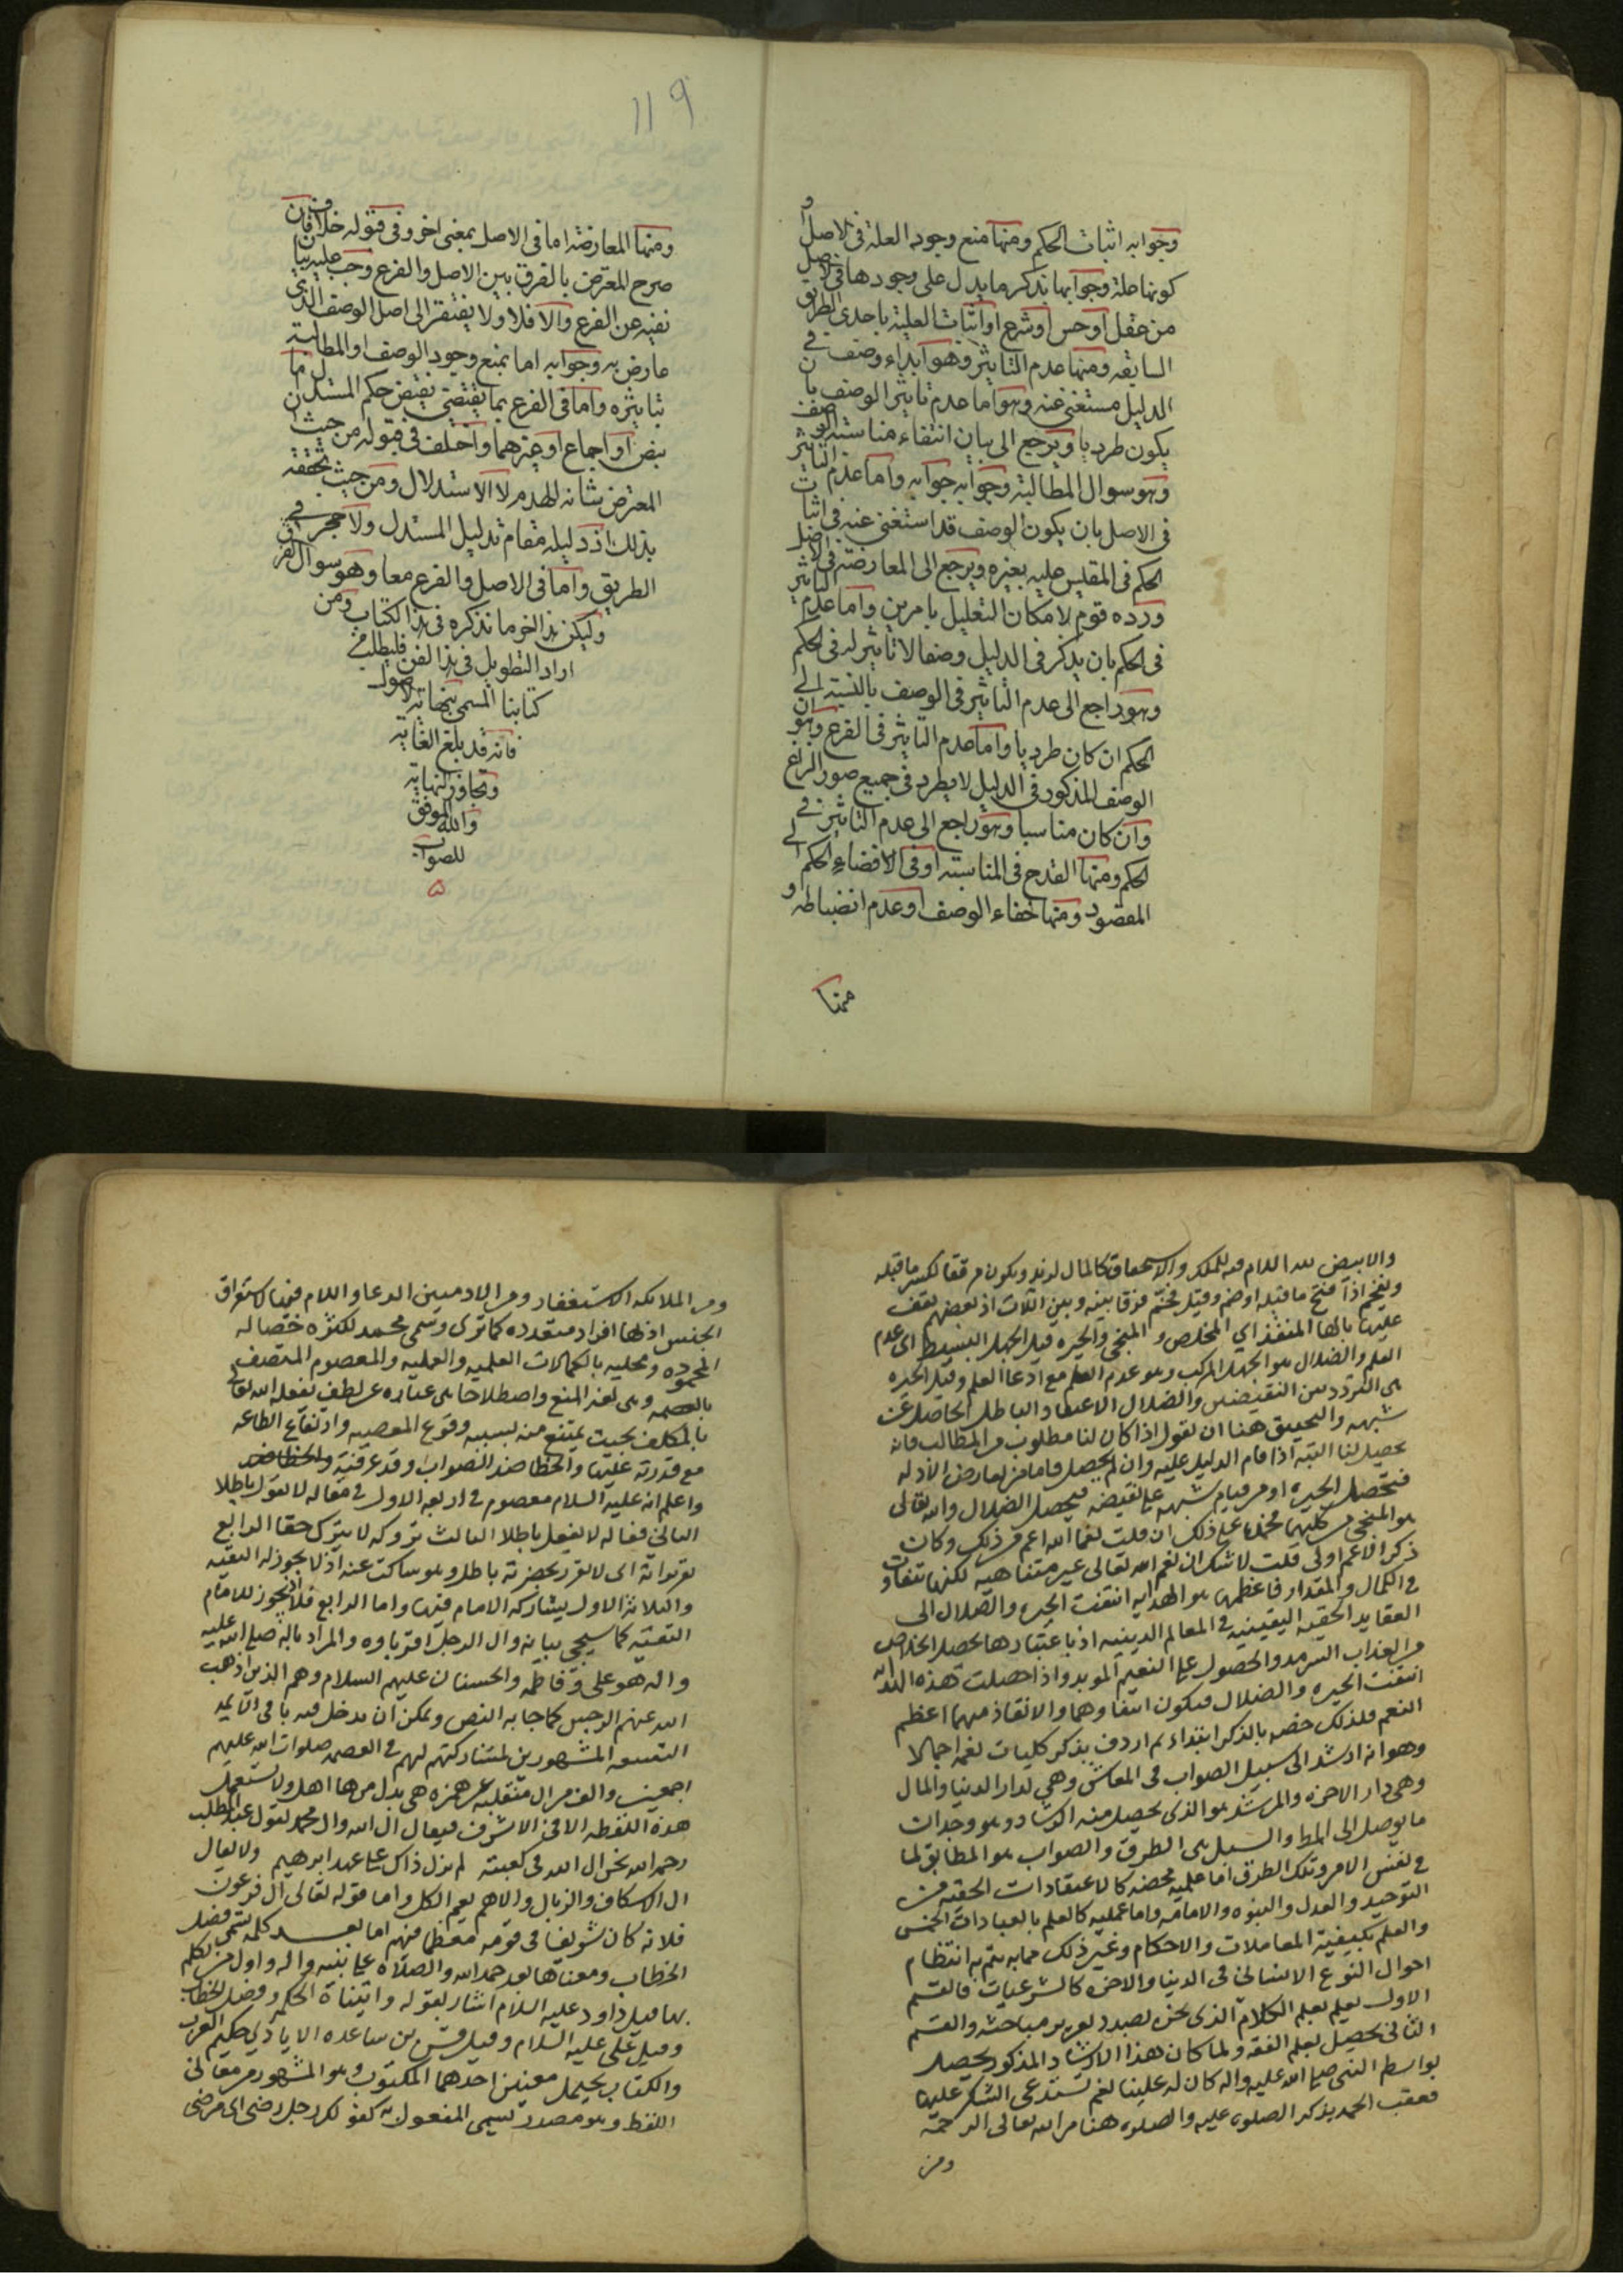 وجوابه اثبات الحكم ومنها منع وجود العلة فى الاصل او
كونها علة وجوابها بذكر ما يدل على وجودها فى الاصل
من عقل او حس او شرع او اثبات العلية باحدى الطرق
السابقه ومنها عدم التاثير وهو ابداء وصف فى
الدليل مستغنى عنه وهو اما عدم تاثير الوصف بان
يكون طرديا ويرجع الى بيان انتفاء مناسبة الوصف
وهو سوال المطالبة وجوابه جوابه واما عدم التاثير
فى الاصل بان يكون الوصف قد استغنى عنه فى اثبات
الحكم فى المقيس عليه بغيره ويرجع الى المعارضة فى الاصل
ورده قوم لامكان التعليل بامرين واما عدم التاثير
فى الحكم بان يذكر فى الدليل وصفا لا تاثير له فى الحكم
وهو راجع الى عدم التاثير فى الوصف بالنسبة الى
الحكم ان كان طرديا واما عدم التاثير فى الفرع وهو ان
الوصف المذكور فى الدليل لا يطرد فى جميع صور النزاع
وان كان مناسبا وهو راجع الى عدم التاثير فى
الحكم ومنها القدح فى المناسبة او فى الافضاء الحكم الى
المقصود ومنها خفاء الوصف او عدم انضباطه و
منها
119
ومنها المعارضة اما فى الاصل بمعنى اخر وفى قبوله خلاف فان
صرح المعترض بالفرق بين الاصل والفرع وجب عليه بيان
نفيه عن الفرع والا فلا ولا يفتقر الى اصل الوصف الذى
عارض به وجوابه اما بمنع وجود الوصف او المطالبة
بتاثيره واما فى الفرع بما يقتضى نقيض حكم المستدل اما
بنص او اجماع او غيرهما واختلف فى قبوله من حيث ان
المعترض شانه الهدم لا الاستدلال ومن حيث تحققه
بذلك اذ دليله مقام بدليل المستدل ولا حجر فى
الطريق واما فى الاصل والفرع معا وهو سوال الفرق
وليكن هذا اخر ما نذكره فى هذا الكتاب ومن
اراد التطويل فى هذا الفن فليطلب فى
كتابنا المسمى بنهاية الاصول
فانه قد بلغ الغاية
وتجاوز النهاية
والله الموفق
للصواب
والابيض لله اللام فيه للملك والاستحقاق كالمال لزيد ويكون مرققا لكسر ما قبله
ويفخم اذا فتح ما قبله او ضم وقيل فخم فرقا بينه وبين اللات اذ بعضهم يقف
عليها بالهاء المنقذ اي المخلص والمنجى والحيره قيل الجهل البسيط اى عدم
العلم والضلال هو الجهل المركب وهو عدم العلم مع ادعا العلم وقيل الحيره
هى التردد بين النقيضين والضلال الاعتقاد الباطل الحاصل عن
شبهه والتحقيق هنا ان نقول اذا كان لنا مطلوب من المطالب فانه
يحصل لنا البته اذا قام الدليل عليه وان لم يحصل فاما من تعارض الادله
فتحصل الحيره او من قيام شبهه على نقيضه فيحصل الضلال والله تعالى
هو المنجى من كليهما فحمد على ذلك ان قلت نعما الله اعم من ذلك وكان
ذكر الاعم اولى قلت لا شك ان نعم الله تعالى غير متناهيه لكنها تتفاوت
فى الكمال والمقدار فاعظمها هو الهدايه انتفت الحيره والضلال الى
العقايد الحقيه اليقينيه فى المعالم الدينيه اذ باعتبارها يحصل الخلاص
من العذاب السرمد والحصول على النعيم الموبد واذا حصلت هذه الهدايه
انتفت الحيره والضلال فيكون انتفاوهما والانقاذ منهما اعظم
النعم فلذلك خصه بالذكر ابتداء ثم اردف بذكر كليات نعمه اجمالا
وهو انه ارشد الى سبيل الصواب فى المعاش وهى لدار الدنيا والمال
وهى دار الاخره والمرشد هو الذى يحصل منه الرشاد وهو وجدان
ما يوصل الى المط والسبيل هى الطرق والصواب هو المطابق لما
فى نفس الامر وتلك الطرق اما علميه محضه كالاعتقادات الحقيه من
التوحيد والعدل والنبوه والامامه واما عمليه كالعلم بالعبادات الخمس
والعلم بكيفية المعاملات والاحكام وغير ذلك مما به يتم به انتظام
احوال النوع الانسانى فى الدنيا والاخره كالشرعيات فالقسم
الاول يعلم بعلم الكلام الذى نحن بصدد تقرير مباحثه والقسم
الثانى يحصل بعلم الفقه ولما كان هذا الارشاد المذكور يحصل
بواسطه النبى صلى الله عليه واله كان له علينا نعم تستدعى الشكر عليها
فعقب الحمد بذكر الصلوه عليه والصلوه هنا من الله تعالى الرحمة
ومن
ومن الملائكه الاستغفار ومن الادميين الدعا واللام فيها لاستغراق
الجنس اذ لها افراد متعدده كما ترى وسمى محمد لكثرة خصاله
المحموده وتحليه بالكمالات العلميه والعمليه والمعصوم المتصف
بالعصمه وهى لغة المنع واصطلاحا هى عباره عن لطف يفعله الله تعالى
بالمكلف بحيث يمتنع منه بسببه وقوع المعصيه وارتفاع الطاعه
مع قدرته عليها والخطا ضد الصواب وقد عرفته
واعلم انه عليه السلام معصوم فى اربعه الاول فى مقاله لا يقول باطلا
الثانى فعاله لا يفعل باطلا الثالث تروكه لا يترك حقا الرابع
تقريراته اى لا يقرر بحضرته باطل وهو ساكت عنه اذ لا يجوز له التقيه
والثلاثة الاول يشاركه الامام فيها واما الرابع فلا اذ يجوز للامام
التقيه كما سيجى بيانه وال الرجل اقرباوه والمراد باله صلى الله عليه
واله هو على وفاطمه والحسنان عليهم السلام وهم الذين اذهب
الله عنهم الرجس كما جا به النص ويمكن ان يدخل فيه باقى الائمه
التسعه المشهورين لمشاركتهم لهم فى العصمه صلوات الله عليهم
اجمعين والف من ال منقلبه عن همزه هى بدل من ها اهل ولا تستعمل
هذه اللفظه الا فى الاشرف فيقال ال الله وال محمد لقول عبد المطلب
رحمه الله نحن ال الله فى كعبته لم يزل ذاك على عهد ابرهيم ولا يقال
ال الاسكاف والزبال والاهل يعم الكل واما قوله تعالى ال فرعون
فلانه كان شريفا فى قومه معظما فيهم اما بعد كلمه تسمى فصل
الخطاب ومعناها بعد حمد الله والصلاة على نبيه واله واول من تكلم
بها قيل داود عليه السلام اشار بقوله واتيناه الحكمه وفصل الخطاب
وقيل على عليه السلام وقيل قس بن ساعده الايادي حكيم العرب
والكتاب يحتمل معنيين احدهما المكتوب وهو المشهور من معانى
اللفظ وهو مصدر يسمى المفعول به كقولك رجل رضى اى مرضى